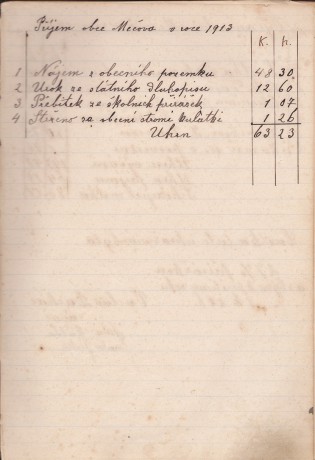 Příjem obce Mečova v roce 1913
K. h.
1 Nájem z obecního pozemku 48 30
2 Úrok ze státního dluhopisu 12 60
3 Přebitek ze školních přirážek 1 07
4 za obecní 1 26
Uhrn 63 23